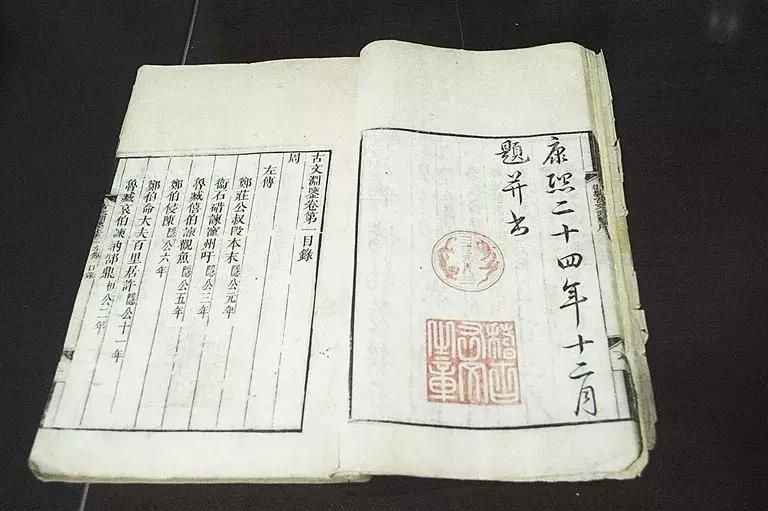 康熙二十四年十二月
題并書
稽古
右文
之章
古文淵鑒卷第一目錄
周
左傳
鄭莊公叔段本末隱公元年
衞石碏諫寵州吁隱公三年
魯臧僖伯諫觀魚隱公五年
鄭伯侵陳隱公六年
鄭伯命大夫百里居許隱公十一年
魯臧哀伯諫納郜鼎桓公二年